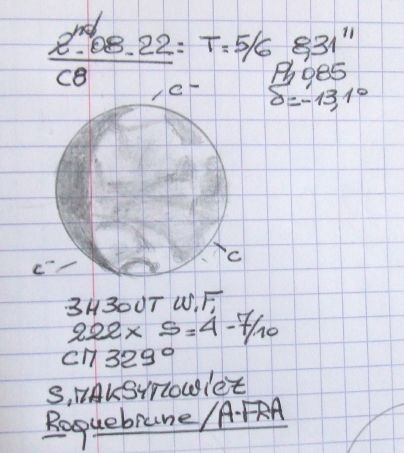 2nd-08-22: T=5/6 8,31"
C8 Ph 0,85
δ=-13,1°
C-
C- C
3H30UT W.F.
222x S=4-7/10
CM 329°
S. MAKSYMOWICZ
Roquebrune/A-FRA